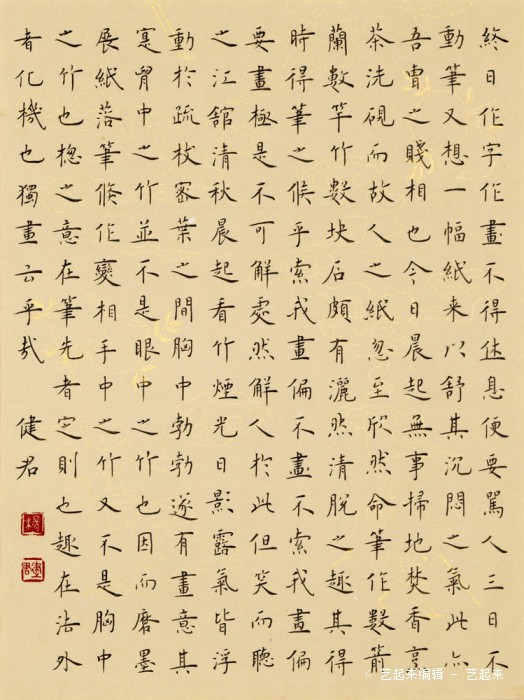 終日作字作畫不得休息便要罵人三日不
動筆又想一幅紙来以舒其沉悶之氣此亦
吾曹之賤相也今日晨起無事掃地焚香烹
茶洗硯而故人之紙忽至欣然命筆作數箭
蘭數竿竹數块石頗有灑然清脱之趣其得
時得筆之候乎索我畫偏不畫不索我畫偏
要畫極是不可解處然解人於此但笑而聽
之江館清秋晨起看竹煙光日影露氣皆浮
動於疏枝密葉之間胸中勃勃遂有畫意其
寔胷中之竹並不是眼中之竹也因而磨墨
展紙落筆倏作變相手中之竹又不是胸中
之竹也揔之意在筆先者定則也趣在法外
者化機也獨畫云乎哉 健君
艺起来编辑 - 艺起来